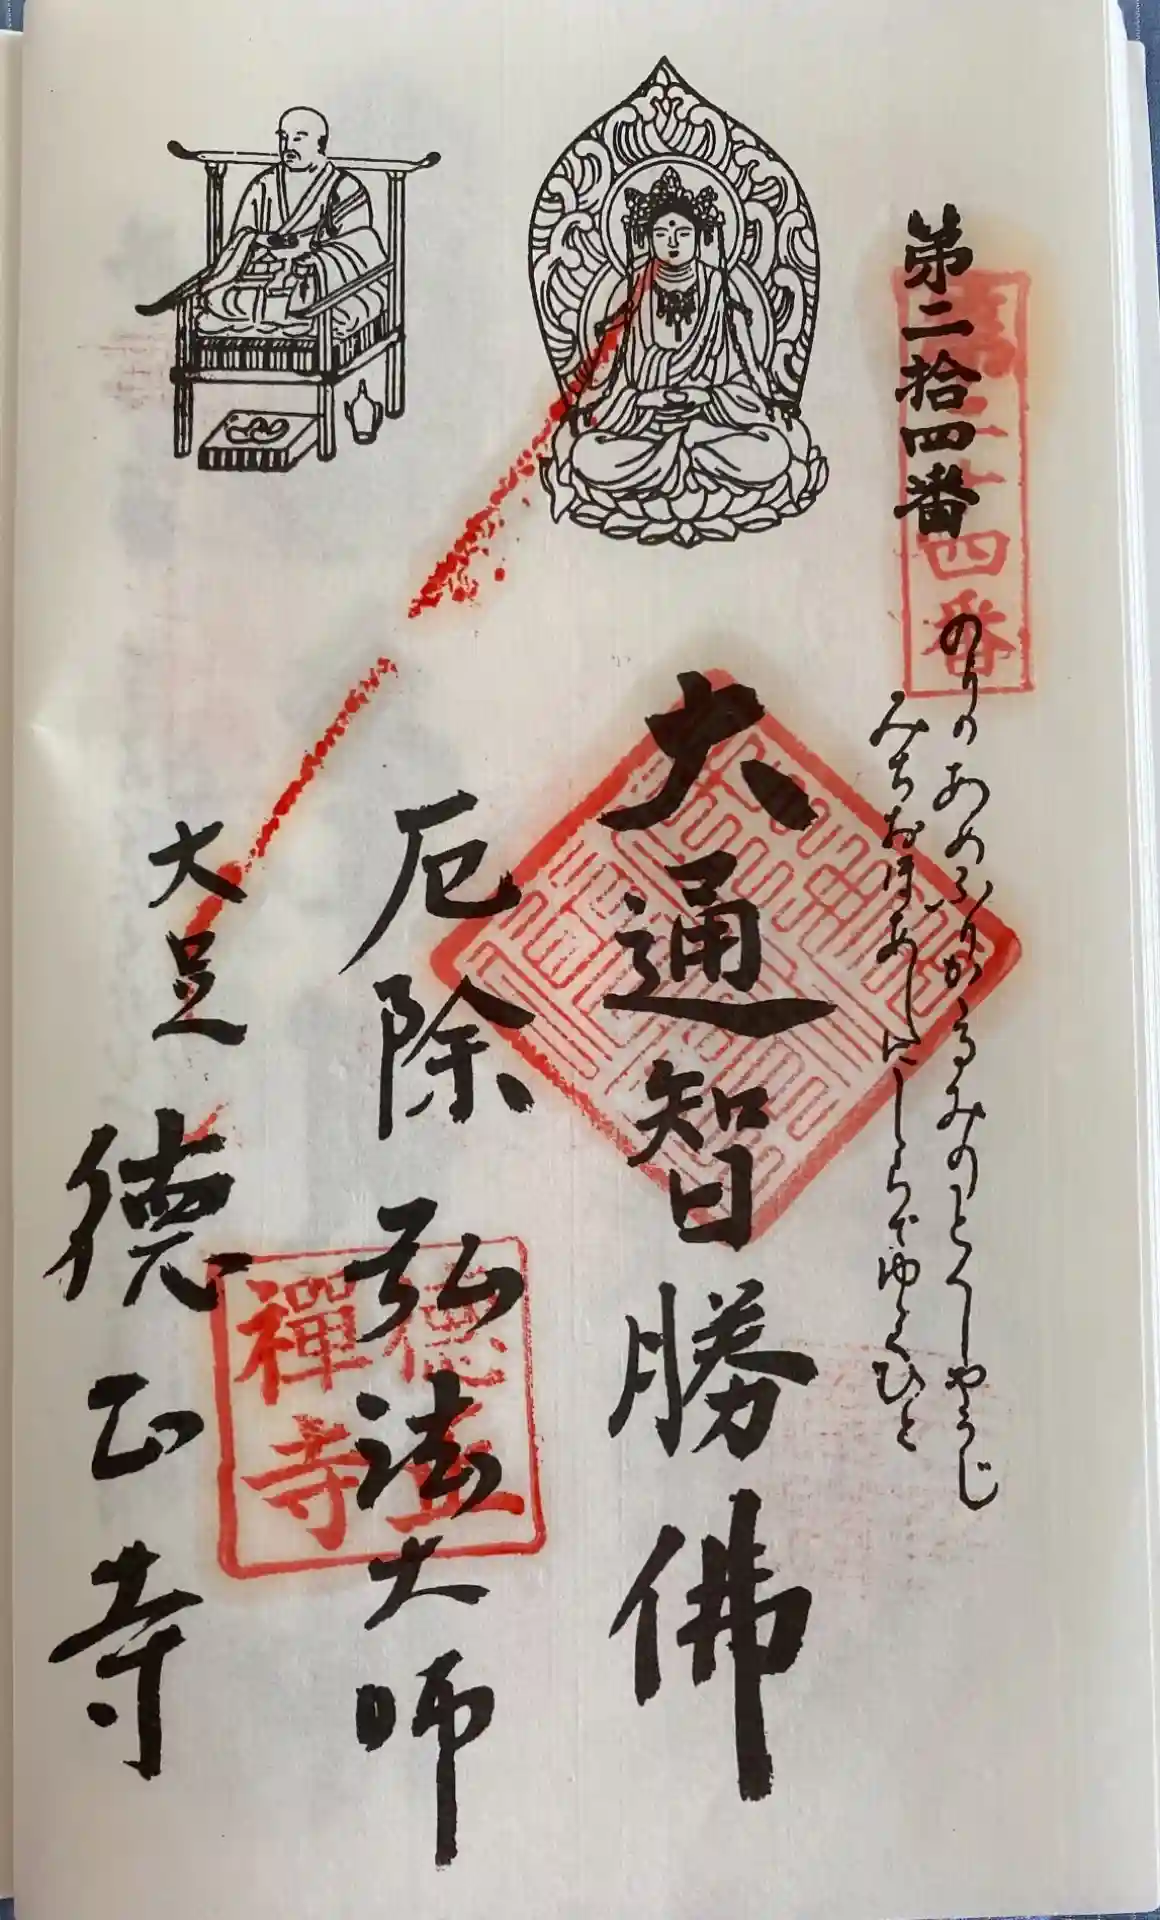 第二拾四番
第二十四番
のりのあめふりかゝるみのとくしやうじ
みちおほあしにしらでゆくひと
大通智勝佛
厄除弘法大師
大足德正寺
德正
禪寺